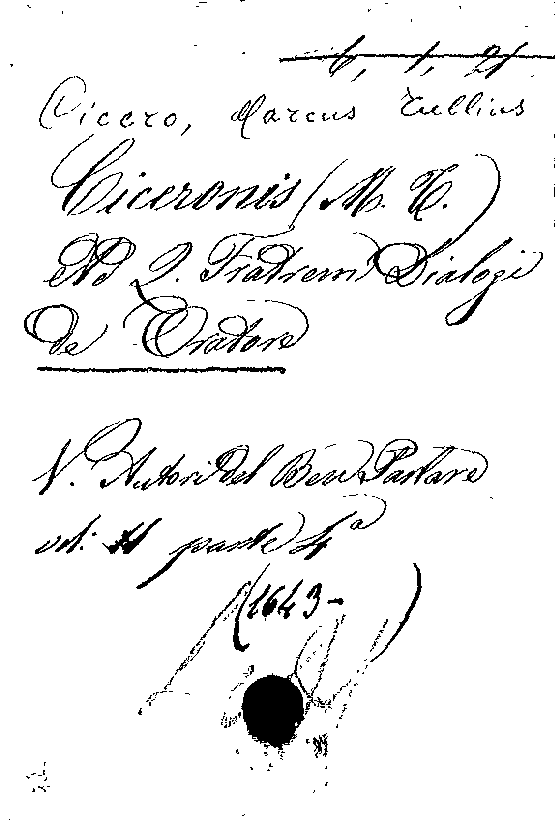 6, 1, 21
Cicero, Marcus Tullius
Ciceronis (M. T.)
Ad Q. Fratrem Dialogi
de Oratore
V. Autori del Ben Parlare
vol: 11 parte 4ª
(1643-)